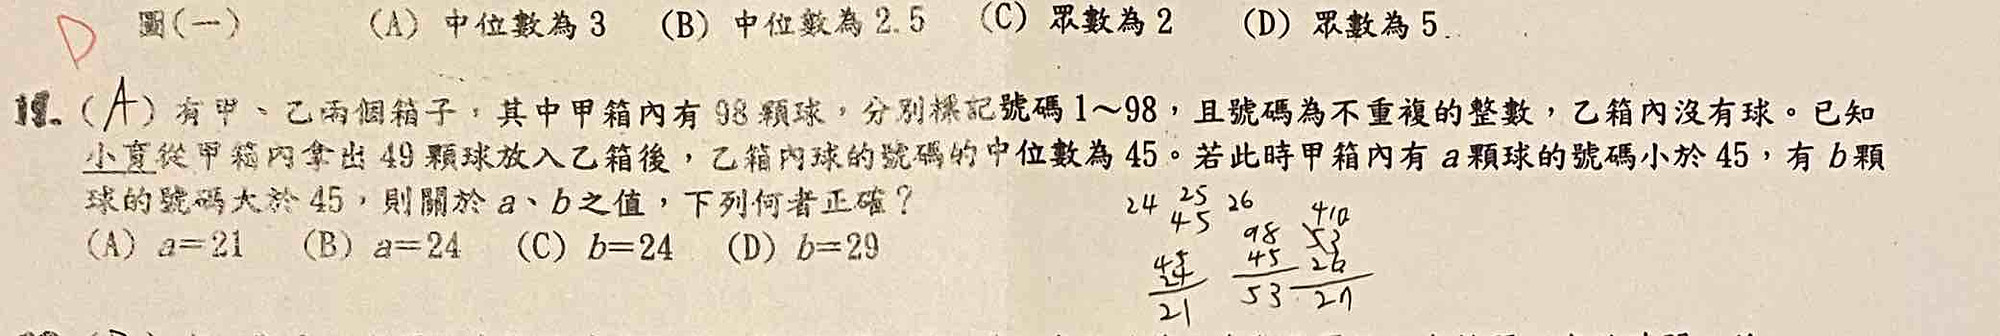 圖(一) (A) 中位數為 3 (B) 中位數為 2.5 (C) 眾數為 2 (D) 眾數為 5
D
(A) 有甲、乙兩個箱子，其中甲箱內有 98 顆球，分別標記號碼 1～98，且號碼為不重複的整數，乙箱內沒有球。已知
小育從甲箱內拿出 49 顆球放入乙箱後，乙箱內球的號碼的中位數為 45。若此時甲箱內有 a 顆球的號碼小於 45，有 b 顆
球的號碼大於 45，則關於 a、b 之值，下列何者正確？
(A) a=21 (B) a=24 (C) b=24 (D) b=29
24 25 26
45
98 53
45 26
53
21